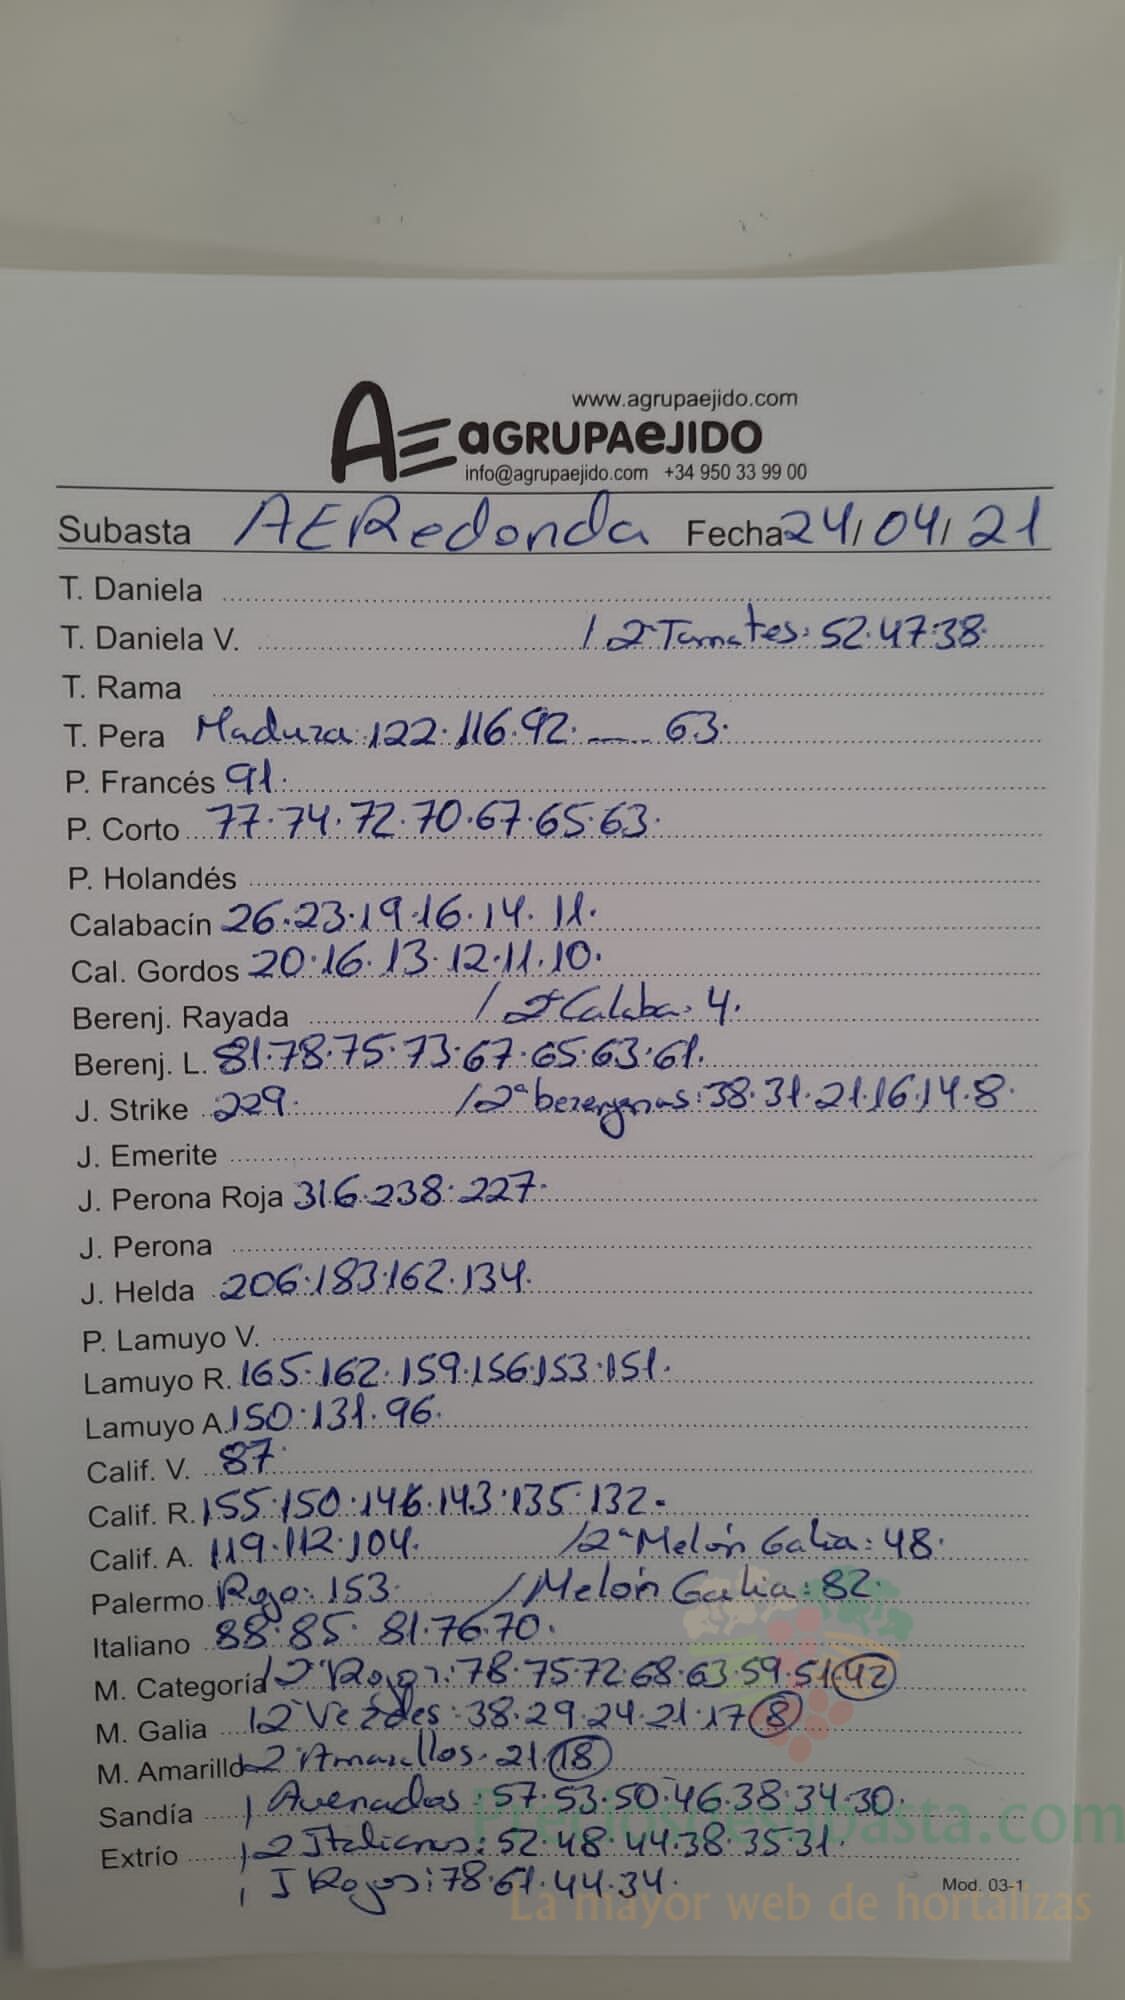 www.agrupaejido.com
AE aGRUPAeJIDO
info@agrupaejido.com +34 950 33 99 00
Subasta AE Redonda Fecha 24/04/21
T. Daniela
T. Daniela V. / 2ª Tomates: 52.47.38.
T. Rama
T. Pera Madura: 122.116.92. — 63.
P. Francés 91.
P. Corto 77.74.72.70.67.65.63.
P. Holandés
Calabacín 26.23.19.16.14.11.
Cal. Gordos 20.16.13.12.11.10.
Berenj. Rayada / 2ª Calaba. 4.
Berenj. L. 81.78.75.73.67.65.63.61.
J. Strike 229. / 2ª berenjenas: 38.31.21.16.14.8.
J. Emerite
J. Perona Roja 316.238.227.
J. Perona
J. Helda 206.183.162.134.
P. Lamuyo V.
Lamuyo R. 165.162.159.156.153.151.
Lamuyo A. 150.131.96.
Calif. V. 87
Calif. R. 155.150.146.143.135.132.
Calif. A. 119.112.104. / 2ª Melón Galia: 48.
Palermo Rojo: 153. / Melón Galia: 82.
Italiano 88.85. 81.76.70.
M. Categoría / 2ª Rojos: 78.75.72.68.63.59.51.42
M. Galia / 2 Verdes: 38.29.24.21.17 8
M. Amarillo 2 Amarillos. 21.18
Sandía / Avenados: 57.53.50.46.38.34.30.
Extrío / 2 Italianos: 52.48.44.38.35.31.
/ J Rojos: 78.61.44.34.
Mod. 03-1
Preciosdesubasta.com
La mayor web de hortalizas